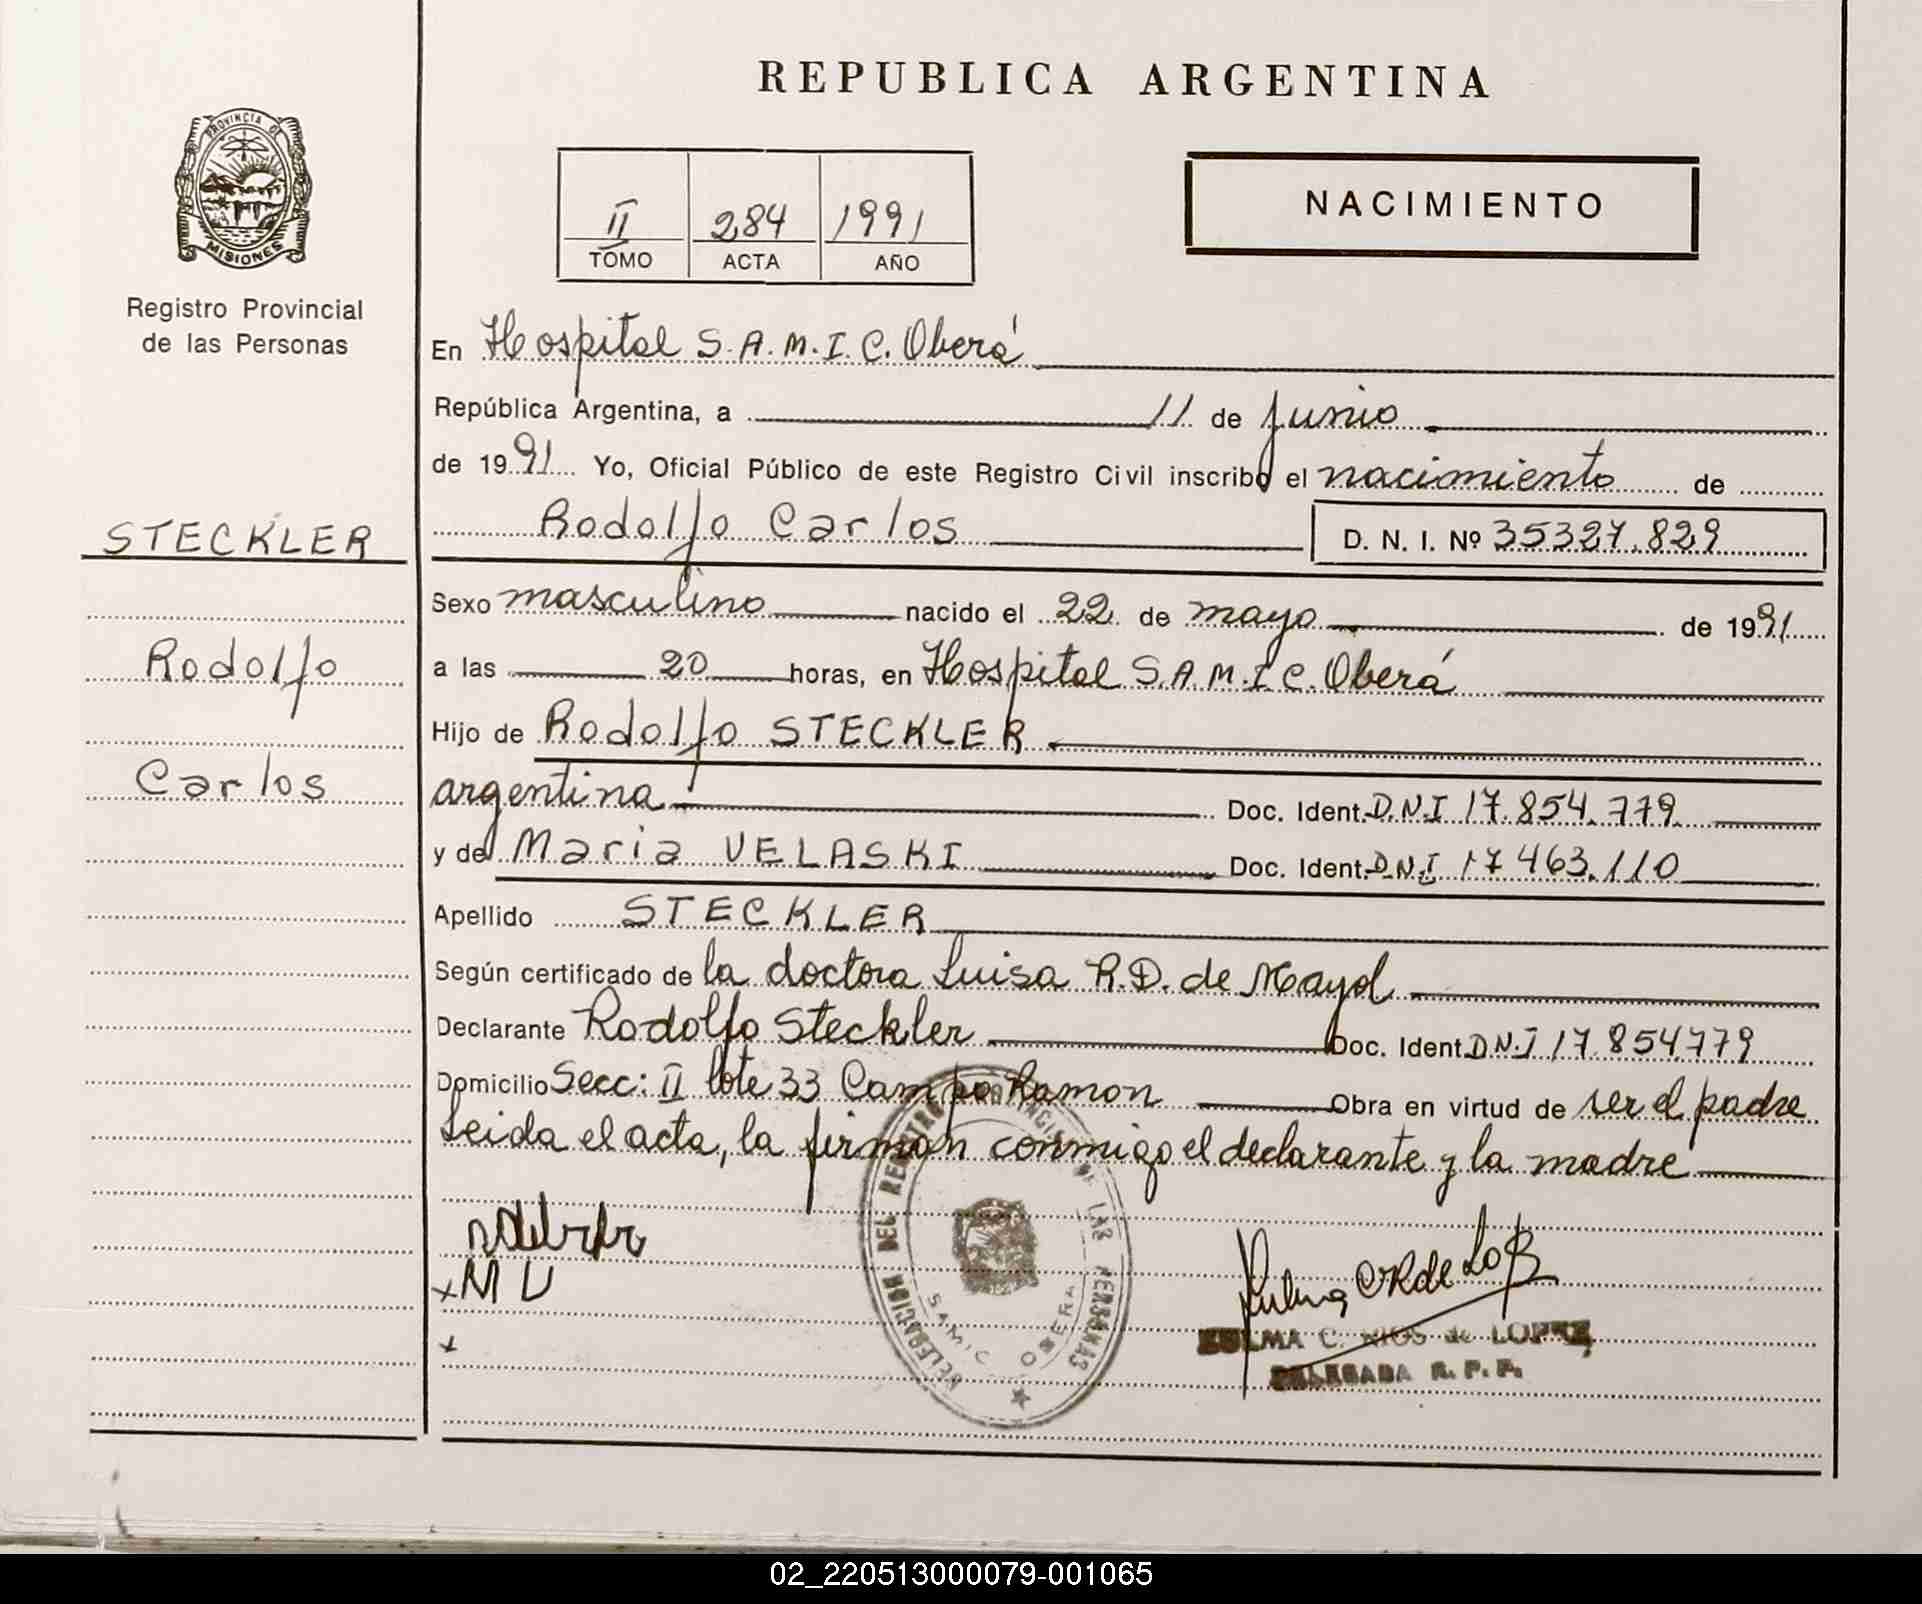 REPUBLICA ARGENTINA
PROVINCIA DE
MISIONES
Registro Provincial
de las Personas
II 284 1991
TOMO ACTA AÑO
NACIMIENTO
En Hospital S.A.M.I.C. Oberá
República Argentina, a 11 de junio
de 1991 Yo, Oficial Público de este Registro Civil inscribo el nacimiento de
Rodolfo Carlos D. N. I. Nº 35327.829
STECKLER
Rodolfo
Carlos
Sexo masculino nacido el 22 de mayo de 1991
a las 20 horas, en Hospital S.A.M.I.C. Oberá
Hijo de Rodolfo STECKLER
argentina Doc. Ident. D.N.I 17.854.779
y de Maria VELASKI Doc. Ident. D.N.I 17463.110
Apellido STECKLER
Según certificado de la doctora Luisa R.D. de Mayol
Declarante Rodolfo Steckler Doc. Ident. D.N.I 17.854779
Domicilio Secc: II lote 33 Campo Ramon Obra en virtud de ser el padre
Leida el acta, la firman conmigo el declarante y la madre
x M V
x
DELEGACION DEL REGISTRO PROVINCIAL DE LAS PERSONAS
SAMIC OBERA
ZULMA C. RIOS de LOPEZ
DELEGADA R. P. P.
02_220513000079-001065